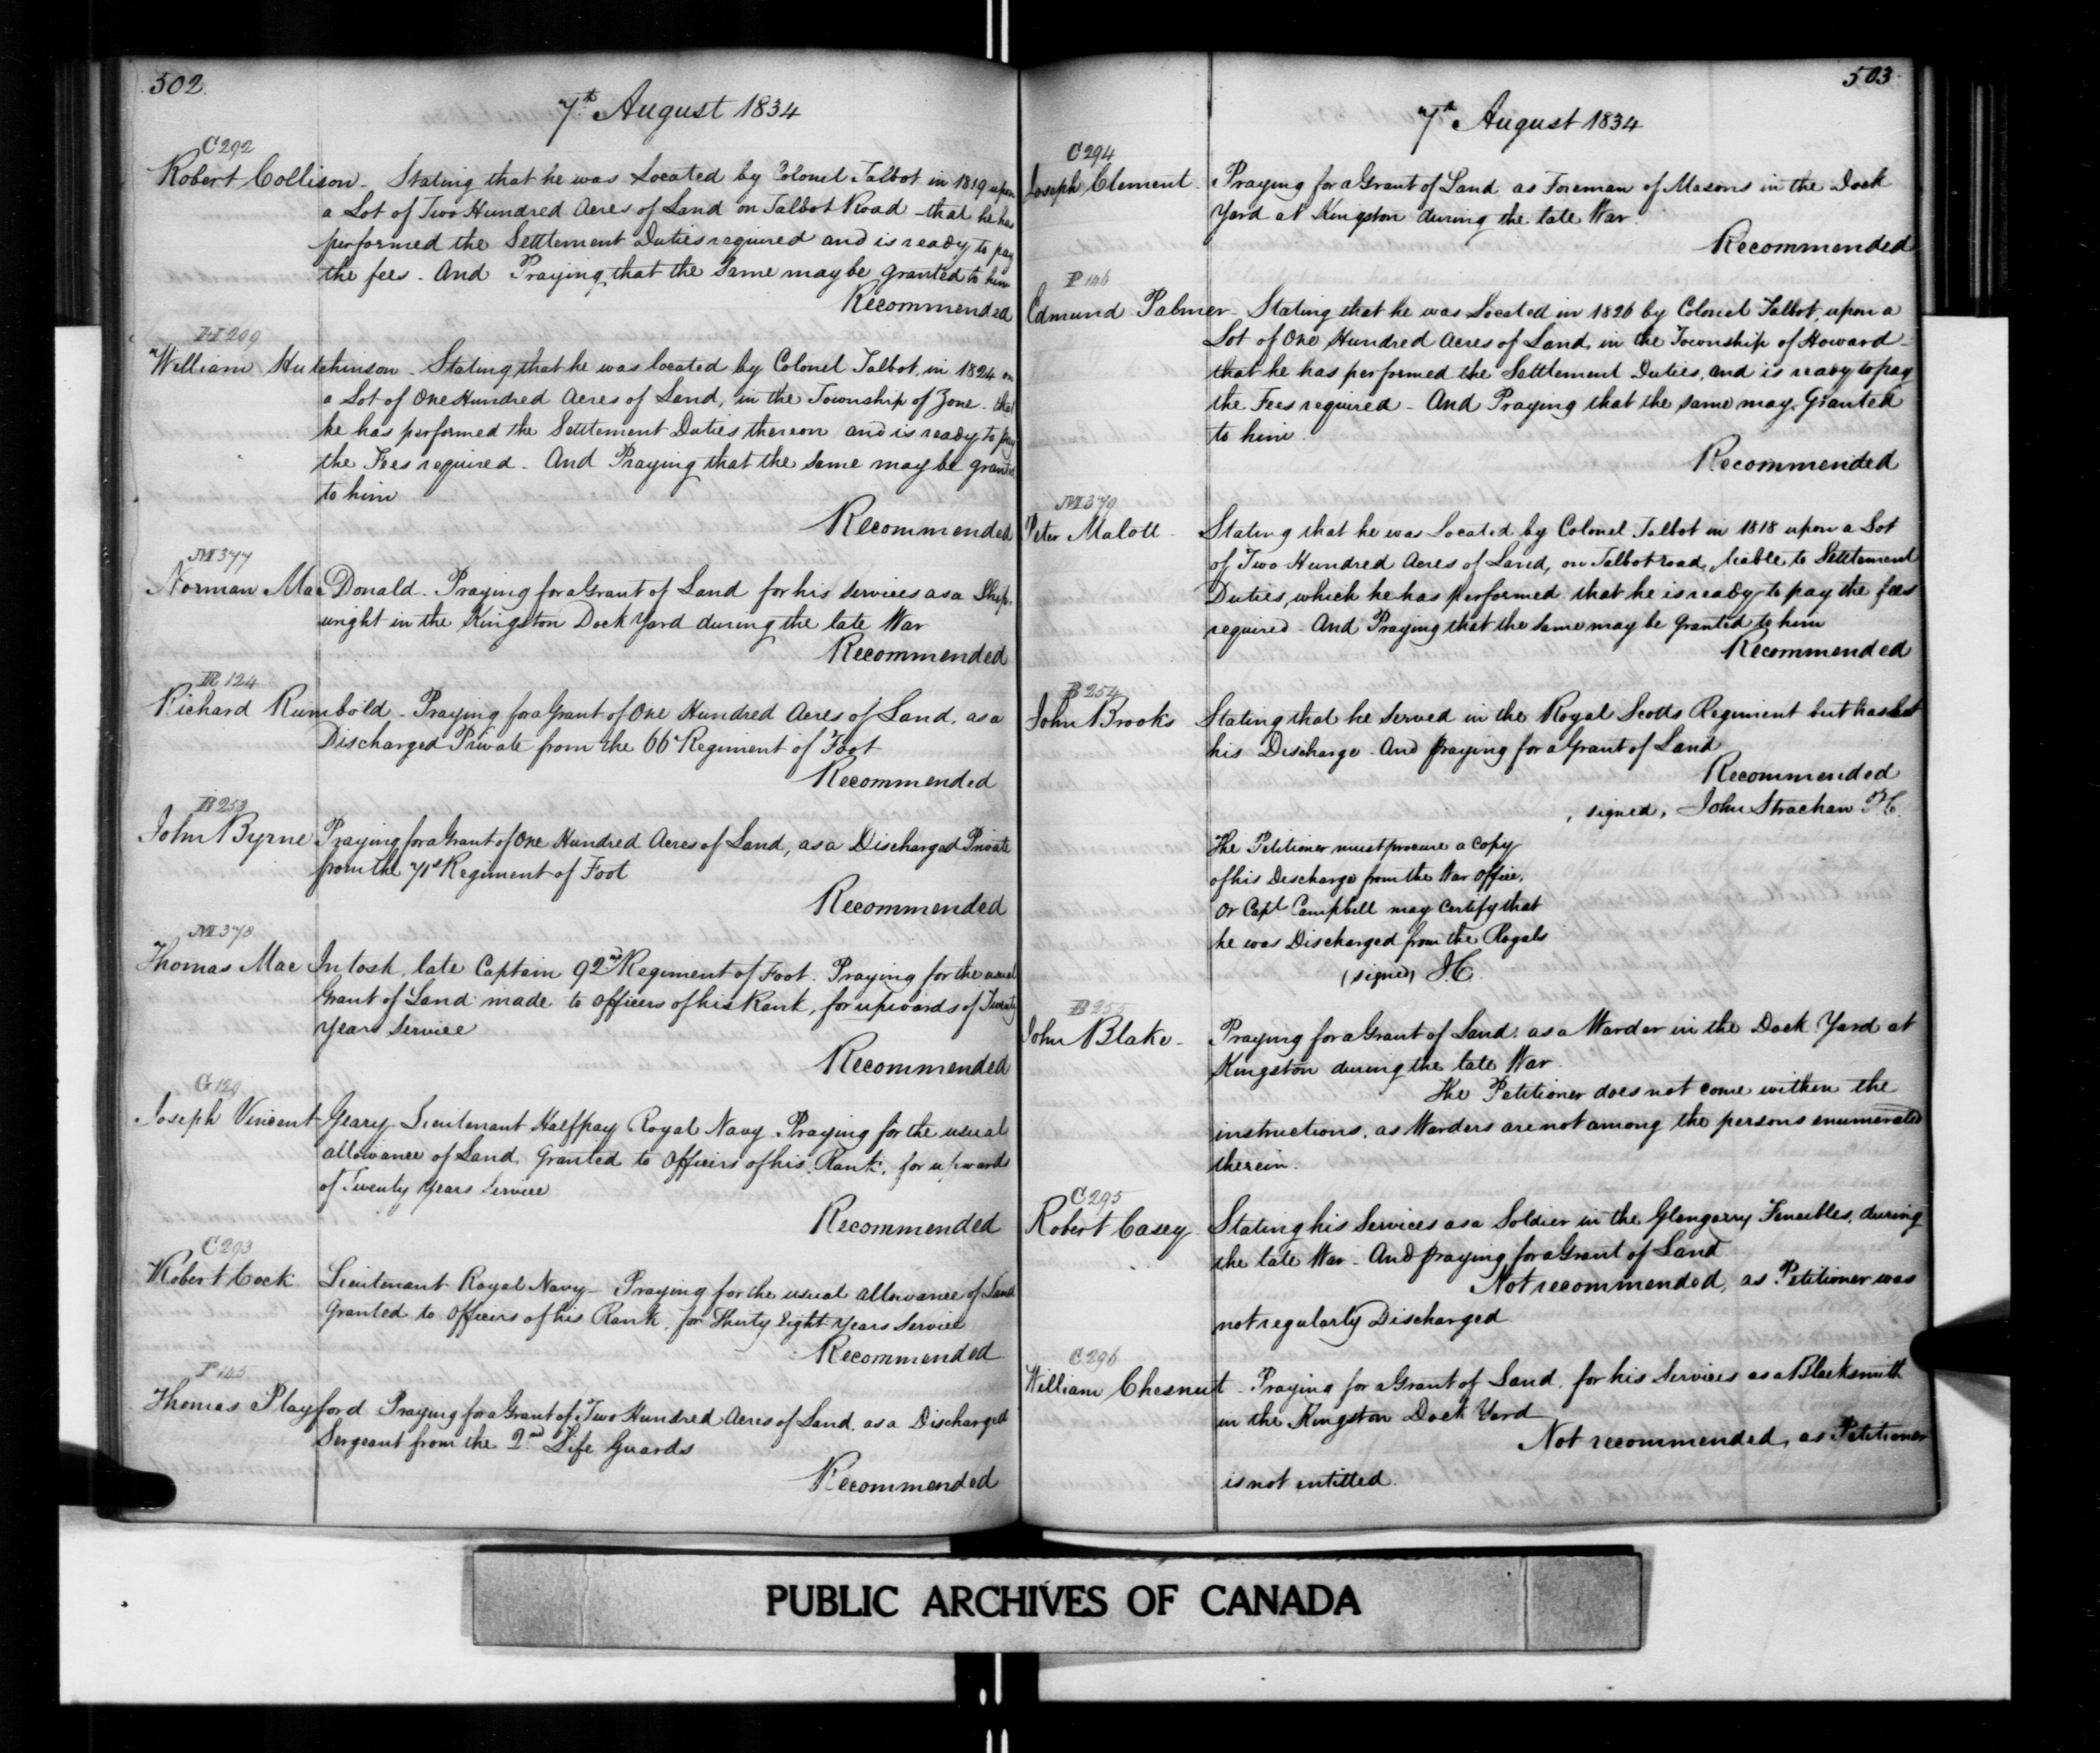 502.
7th August 1834
C 292
Robert Collison - Stating that he was Located by Colonel Talbot in 1819 upon
a Lot of Two Hundred Acres of Land on Talbot Road - that he has
performed the Settlement Duties required and is ready to pay
the fees - And Praying that the same may be granted to him
Recommended
H 209
William Hutchinson - Stating that he was located by Colonel Talbot, in 1824 on
a Lot of One Hundred Acres of Land, in the Township of Zone - that
he has performed the Settlement Duties thereon and is ready to pay
the Fees required - And Praying that the same may be granted
to him
Recommended
M 377
Norman MacDonald - Praying for a Grant of Land for his services as a Ship-
wright in the Kingston Dock Yard during the late War
Recommended
R 124
Richard Rumbold - Praying for a Grant of One Hundred Acres of Land, as a
Discharged Private from the 66th Regiment of Foot
Recommended
B 253
John Byrne Praying for a Grant of One Hundred Acres of Land, as a Discharged Private
from the 71st Regiment of Foot
Recommended
M 378
Thomas MacIntosh, late Captain 92nd Regiment of Foot. Praying for the usual
Grant of Land made to Officers of his Rank, for upwards of Twenty
Years Service
Recommended
G 129
Joseph Vincent Geary Lieutenant Halfpay Royal Navy. Praying for the usual
allowance of Land Granted to Officers of his Rank, for upwards
of Twenty Years Service
Recommended
C 293
Robert Cock Lieutenant Royal Navy - Praying for the usual allowance of Land
Granted to Officers of his Rank, for Thirty Eight Years Service
Recommended
P 145
Thomas Playford Praying for a Grant of Two Hundred Acres of Land, as a Discharged
Sergeant from the 2nd Life Guards
Recommended
503
7th August 1834
C 294
Joseph Clement - Praying for a Grant of Land as Foreman of Masons in the Dock
Yard at Kingston during the late War.
Recommended
P 146
Edmund Palmer - Stating that he was Located in 1826 by Colonel Talbot, upon a
Lot of One Hundred Acres of Land, in the Township of Howard -
that he has performed the Settlement Duties, and is ready to pay
the Fees required - And Praying that the same may Granted
to him
Recommended
M 379
Peter Malott - Stating that he was Located by Colonel Talbot in 1818 upon a Lot
of Two Hundred Acres of Land, on Talbot road, liable to Settlement
Duties, which he has performed that he is ready to pay the fees
required - And Praying that the same may be Granted to him
Recommended
B 254
John Brooks Stating that he Served in the Royal Scotts Regiment but has lost
his Discharge - And praying for a Grant of Land
Recommended
signed, John Strachan P.C.
The Petitioner must procure a copy
of his Discharge from the War Office,
Or Capt Campbell may Certify that
he was Discharged from the Royals
(signed) J.C.
B 255
John Blake - Praying for a Grant of Land, as a Warder in the Dock Yard at
Kingston during the late War.
The Petitioner does not come within the
instructions, as Warders are not among the persons enumerated
therein.
C 295
Robert Casey Stating his Services as a Soldier in the Glengarry Fencibles, during
the late War - And praying for a Grant of Land
Not recommended, as Petitioner was
not regularly Discharged
C 296
William Chesnut - Praying for a Grant of Land, for his Services as a Blacksmith
in the Kingston Dock Yard
Not recommended, as Petitioner
is not entitled.
PUBLIC ARCHIVES OF CANADA